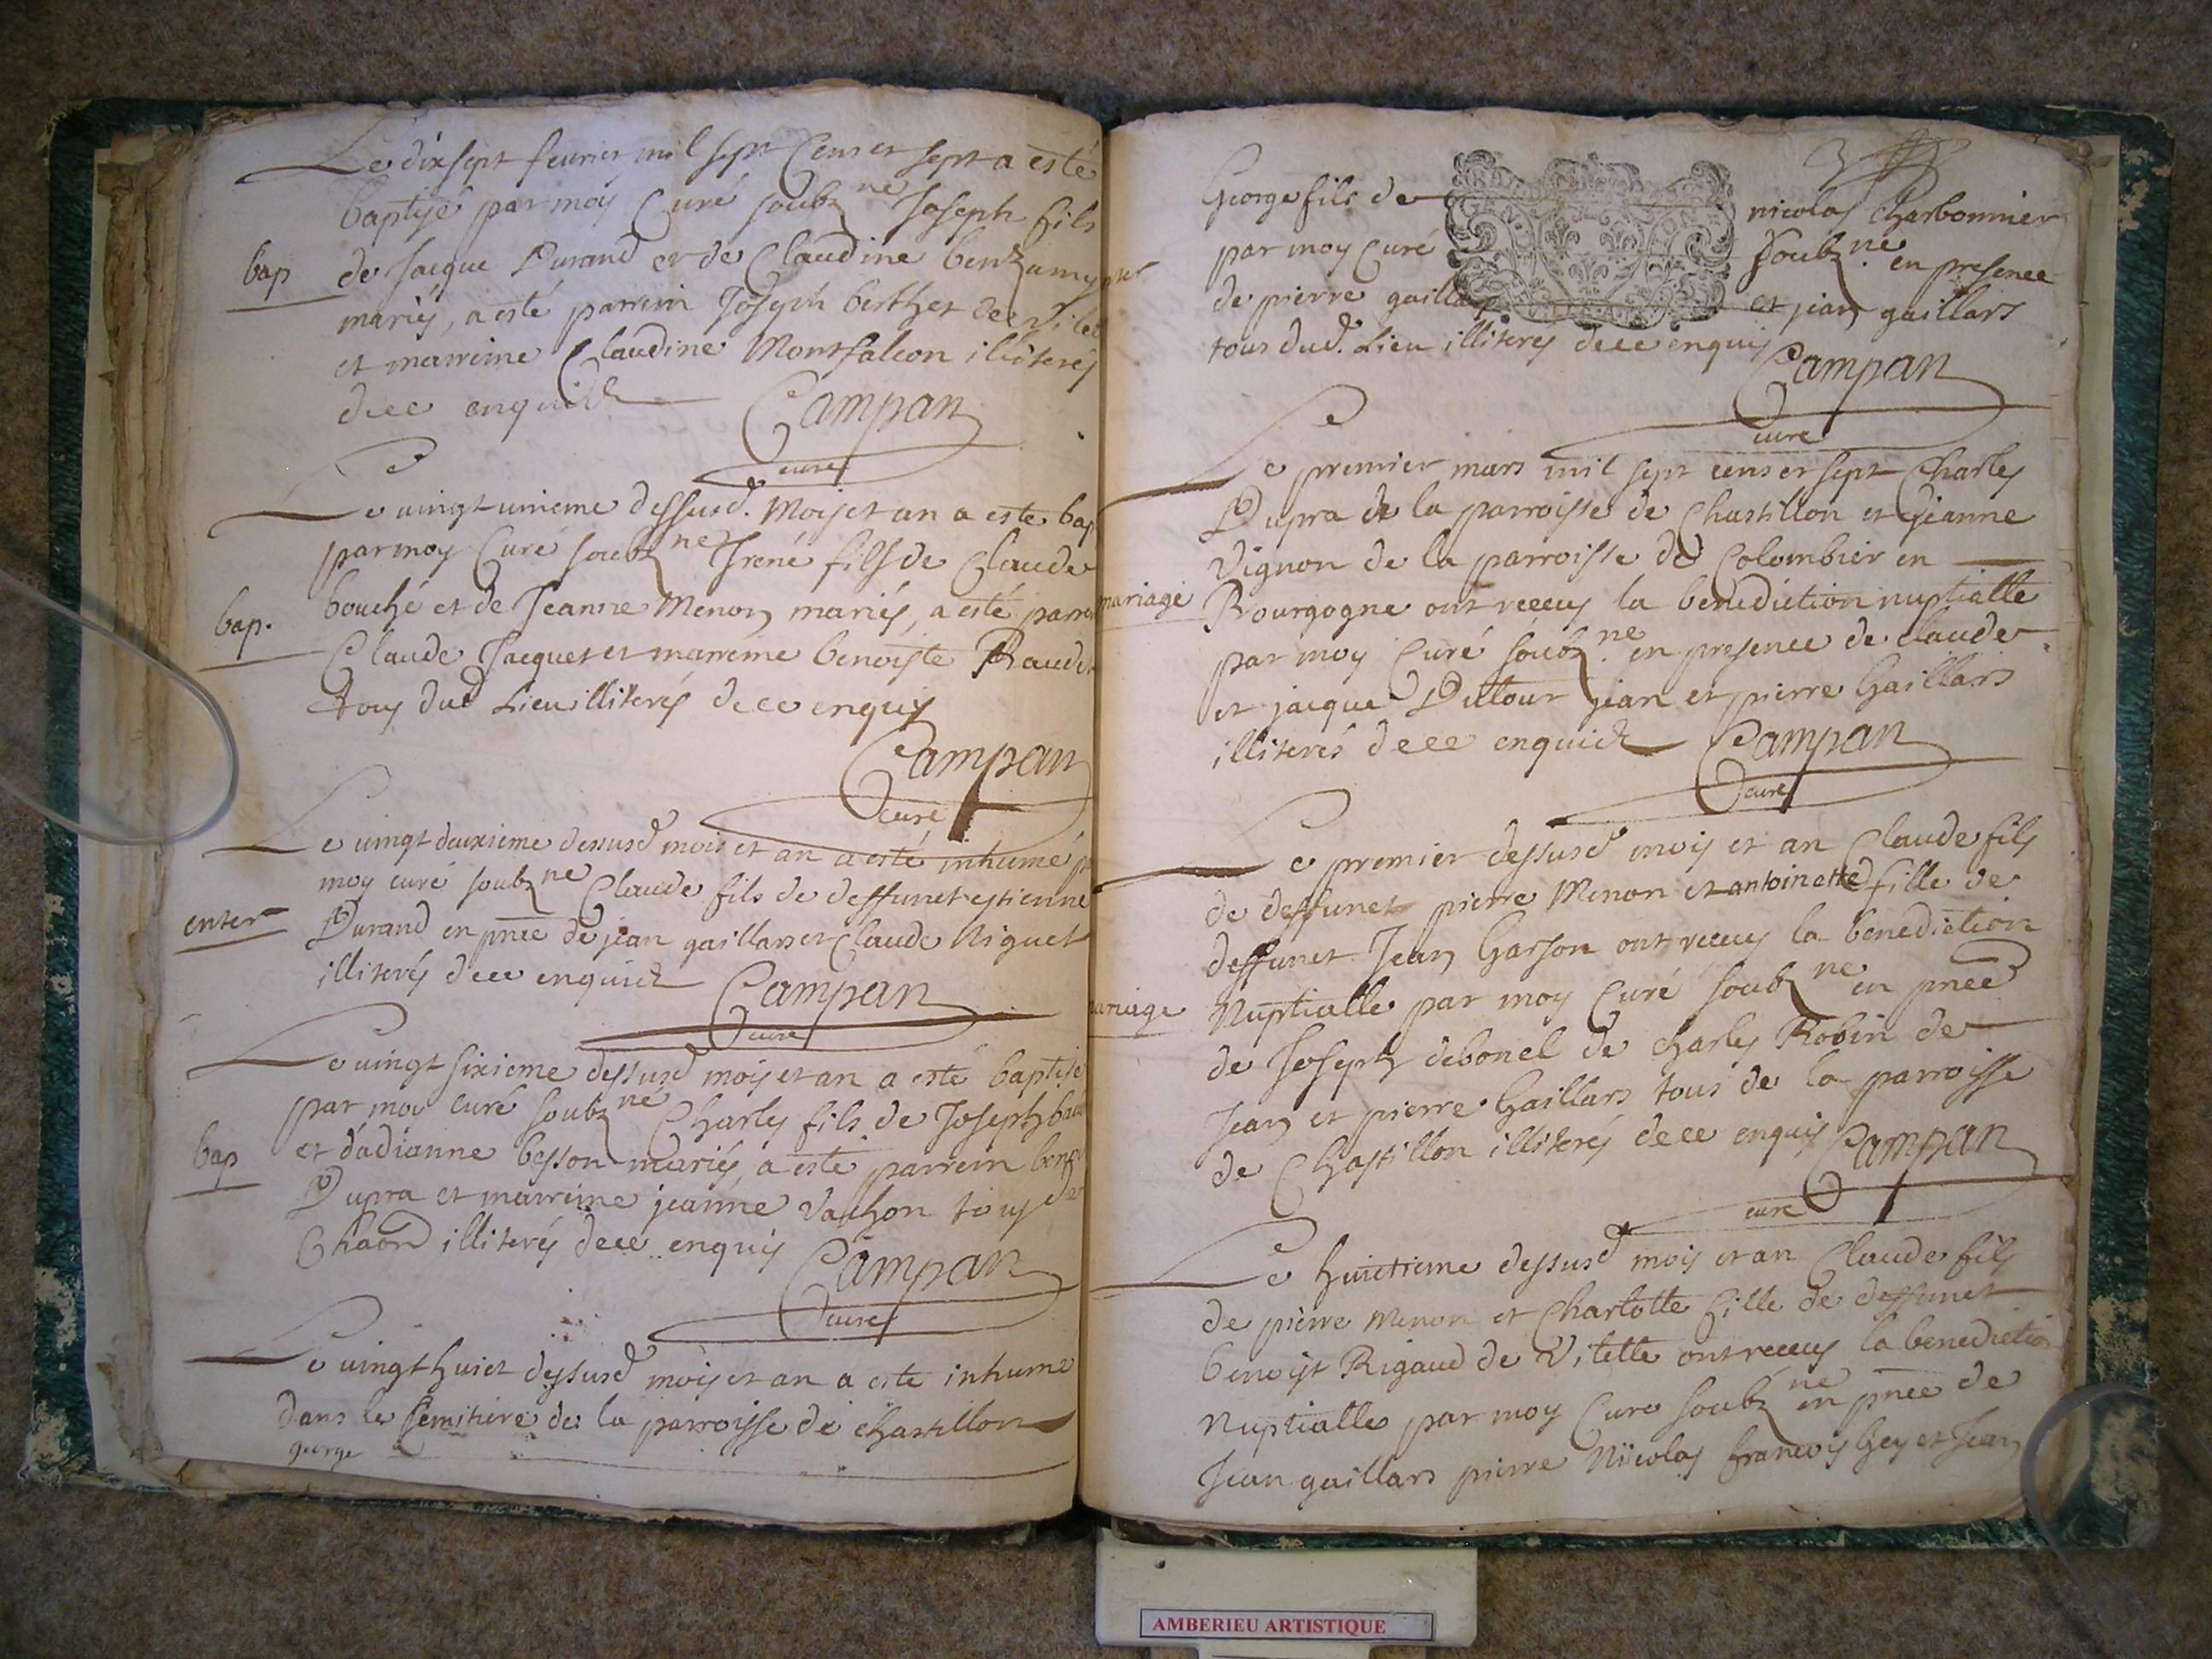 Le dixsept feurier mil sept Cens et sept a esté
baptisé par moy Curé soubzne Joseph fils
bap
de Jacque Durand et de Claudine
mariés, a esté parrein Joseph berthet de
et marreine Claudine Montfalcon illiterés
dece enquis
Campan
curé
Le uingt unieme dessusd. Mois et an a esté bap
par moy Curé soubzne Irené fils de Claude
bap.
bouché et de Jeanne Menon mariés, a esté parrein
Claude Jacquet et marreine benoiste
tous dud Lieu illiterés dece enquis
Campan
curé
Le uingt deuxieme dessusd mois et an a esté inhumé
moy curé soubzne Claude fils de deffunct estienne
enter
Durand en pnce de jean gaillard et Claude Niguet
illiterés dece enquis
Campan
curé
Le uingt sixieme dessusd mois et an a esté baptisé
par moy curé soubzne Charles fils de Joseph
bap
et dadianne besson mariés, a esté parrein
Dupra et marreine jeanne Vachon tous de
Chaon illiterés dece enquis
Campan
curé
Le uingt huict dessusd mois et an a esté inhumé
dans le semitiere de la parroisse de chastillon
george
George fils de nicolas Charbonnier
par moy Curé soubzne en presence
de pierre gaillard et jean gaillard
tous dud. Lieu illiterés dece enquis
Campan
curé
Le premier mars mil sept cens et sept Charles
Dupra de la parroisse de Chastillon et jeanne
Vignon de la parroisse de Colombier en
mariage
Bourgogne ont receus la benediction nuptialle
par moy Curé soubzne en presence de claude
et jacque Dutour jean et pierre Gaillard
illiterés dece enquis
Campan
curé
Le premier dessusd mois et an Claude fils
de deffunct pierre Menon et antoinette fille de
deffunct Jean Garson ont receus la benediction
mariage
Nuptialle par moy Curé soubzne en pnce
de Joseph debonel de charles Robin de
Jean et pierre Gaillard tous de la parroisse
de Chastillon illiterés dece enquis
Campan
curé
Le huictieme dessusd mois et an Claude fils
de pierre Menon et Charlotte fille de deffunct
benoist Rigaud de Vilette ont receus la benediction
Nuptialle par moy Curé soubzne en pnce de
Jean gaillard pierre Nicolas francois Gey et Jean
AMBERIEU ARTISTIQUE